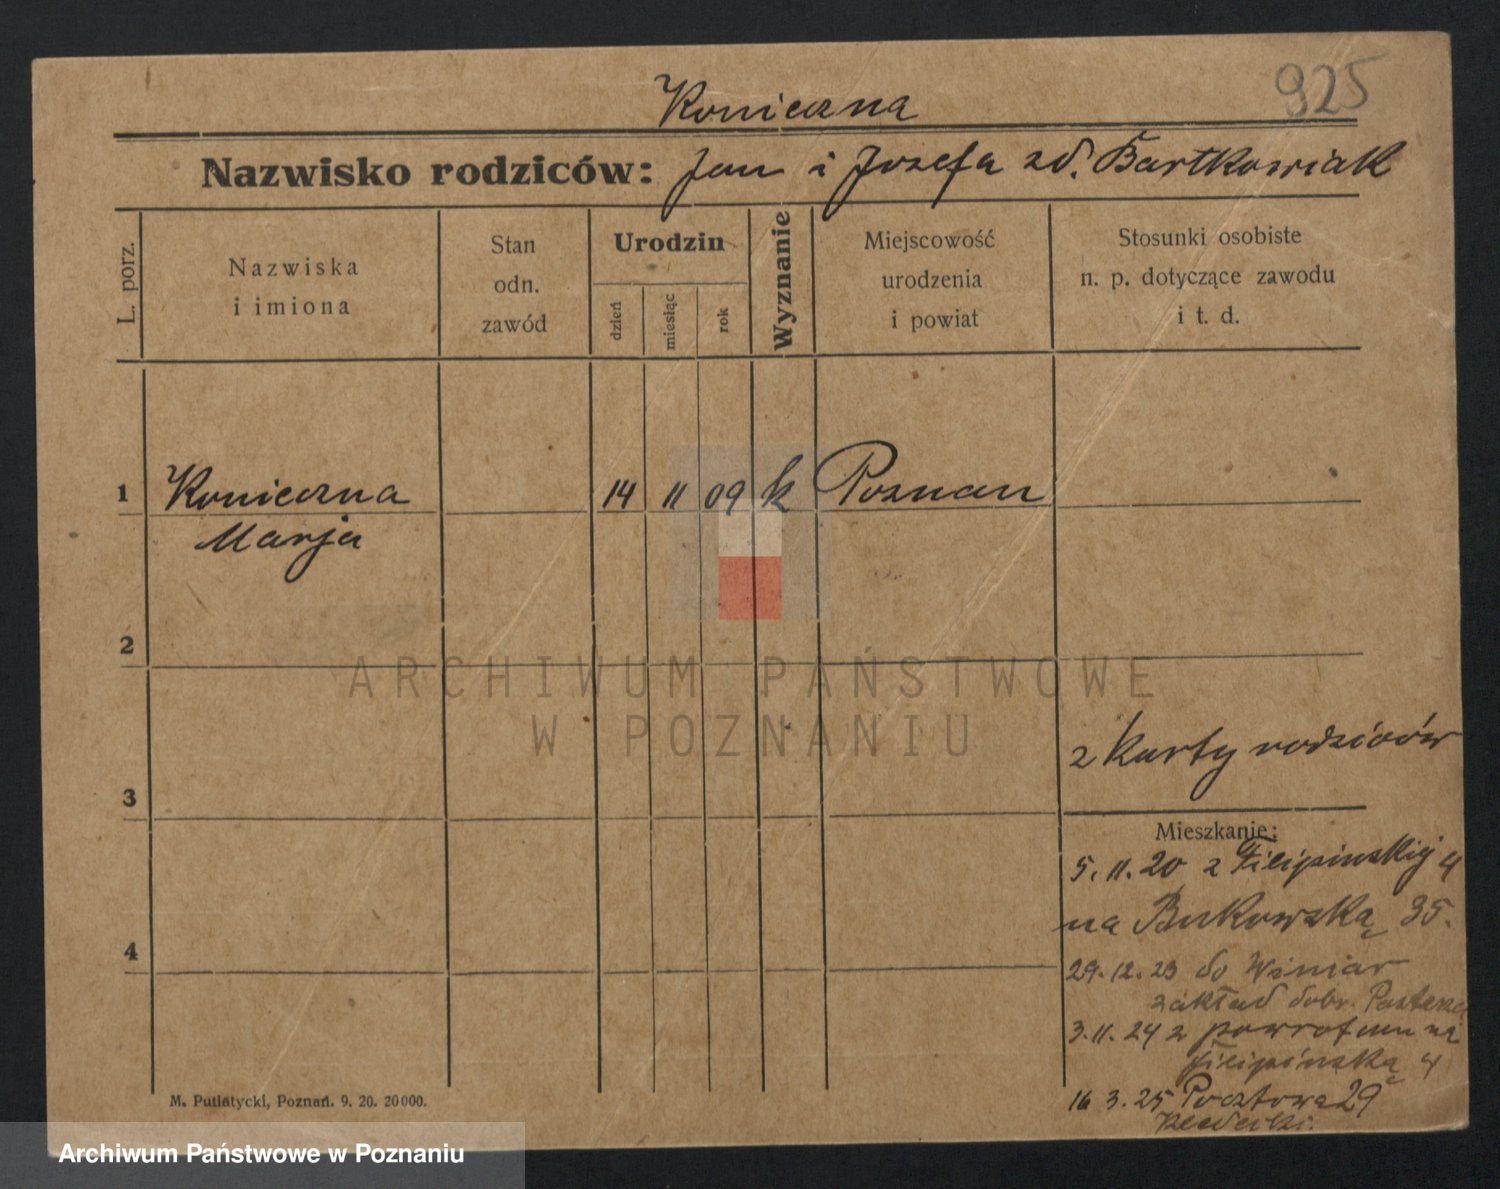 925
Konieczna
Nazwisko rodziców: Jan i Jozefa zd. Bartkowiak
L. porz.
Nazwiska
i imiona
Stan
odn.
zawód
Urodzin
dzień
miesiąc
rok
Wyznanie
Miejscowość
urodzenia
i powiat
Stosunki osobiste
n. p. dotyczące zawodu
i t. d.
1 Konieczna 14 11 09 k Poznan
Marja
2
ARCHIWUM PAŃSTWOWE
W POZNANIU
z karty rodziców
3
Mieszkanie:
5. 11. 20 z Filipinskiej 4
na Bukowską 35.
4
29. 12. 23 do Winiar
zakład dobr.
3. 11. 24 z powrotem na
Filipińską 4
16 3. 25 Pocztowa 29
M. Putiatycki, Poznań. 9. 20. 20000.
Archiwum Państwowe w Poznaniu